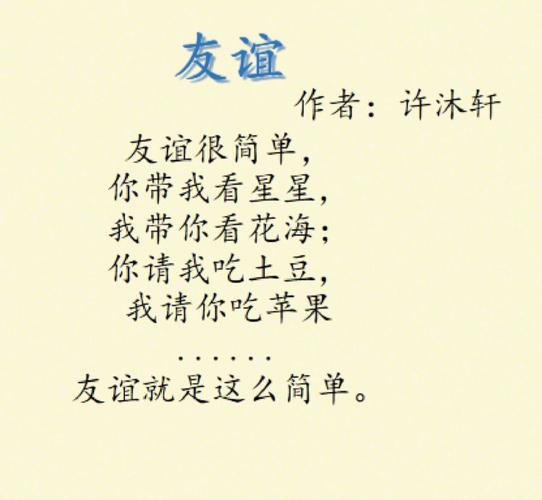 友谊
作者：许沐轩
友谊很简单，
你带我看星星，
我带你看花海；
你请我吃土豆，
我请你吃苹果
······
友谊就是这么简单。